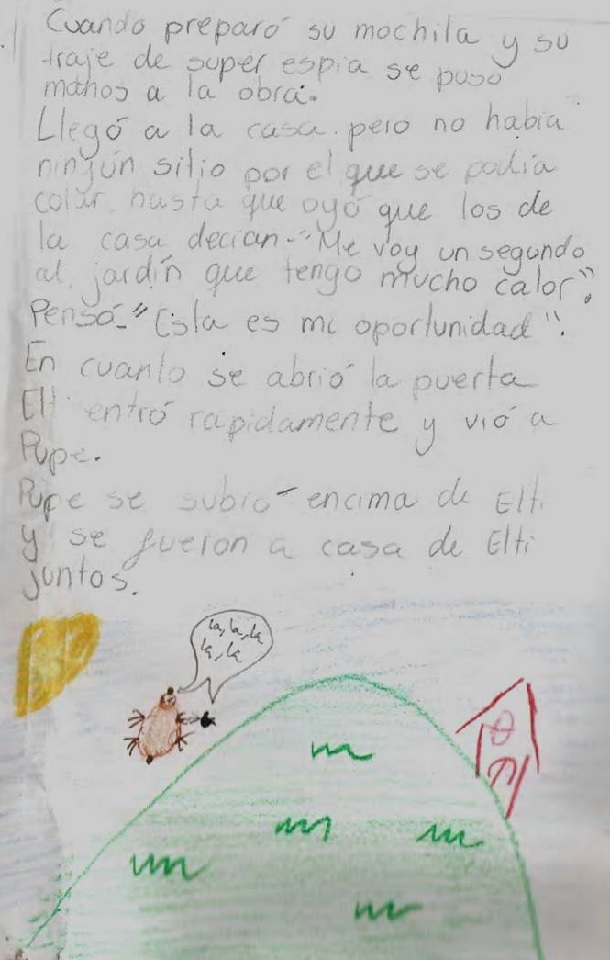 Cuando preparó su mochila y su
traje de super espia se puso
manos a la obra.
Llegó a la casa pero no habia
ningún sitio por el que se podia
colar hasta que oyó que los de
la casa decian-"Me voy un segundo
al jardín que tengo mucho calor".
Pensó-"Esta es mi oportunidad".
En cuanto se abrió la puerta
Elti entró rapidamente y vió a
Pupe.
Pupe se subió encima de Elti
y se fueron a casa de Elti
juntos.
la, la, la
la, la